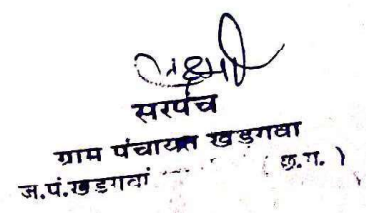 लक्ष्मी
सरपंच
ग्राम पंचायत खडगवा
ज.पं.खडगवां (छ.ग.)